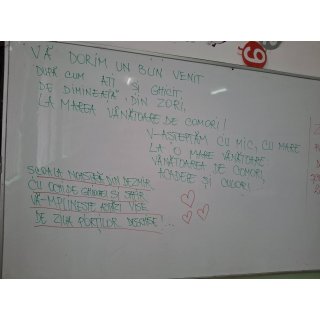 VĂ DORIM UN BUN VENIT
DUPĂ CUM AȚI ȘI GHICIT,
DE DIMINEAȚĂ DIN ZORI,
LA MAREA VÂNĂTOARE DE COMORI!
V-AȘTEPTĂM CU MIC, CU MARE
LA O MARE VÂNĂTOARE
VÂNĂTOAREA DE COMORI,
ȘI CULORI
ȘCOALA NOASTRĂ DIN DEZMIR
CU OCHI DE ȘI
VĂ-MPLINEȘTE ASTĂZI VISE
DE ZIUA PORȚILOR DESCHISE!...